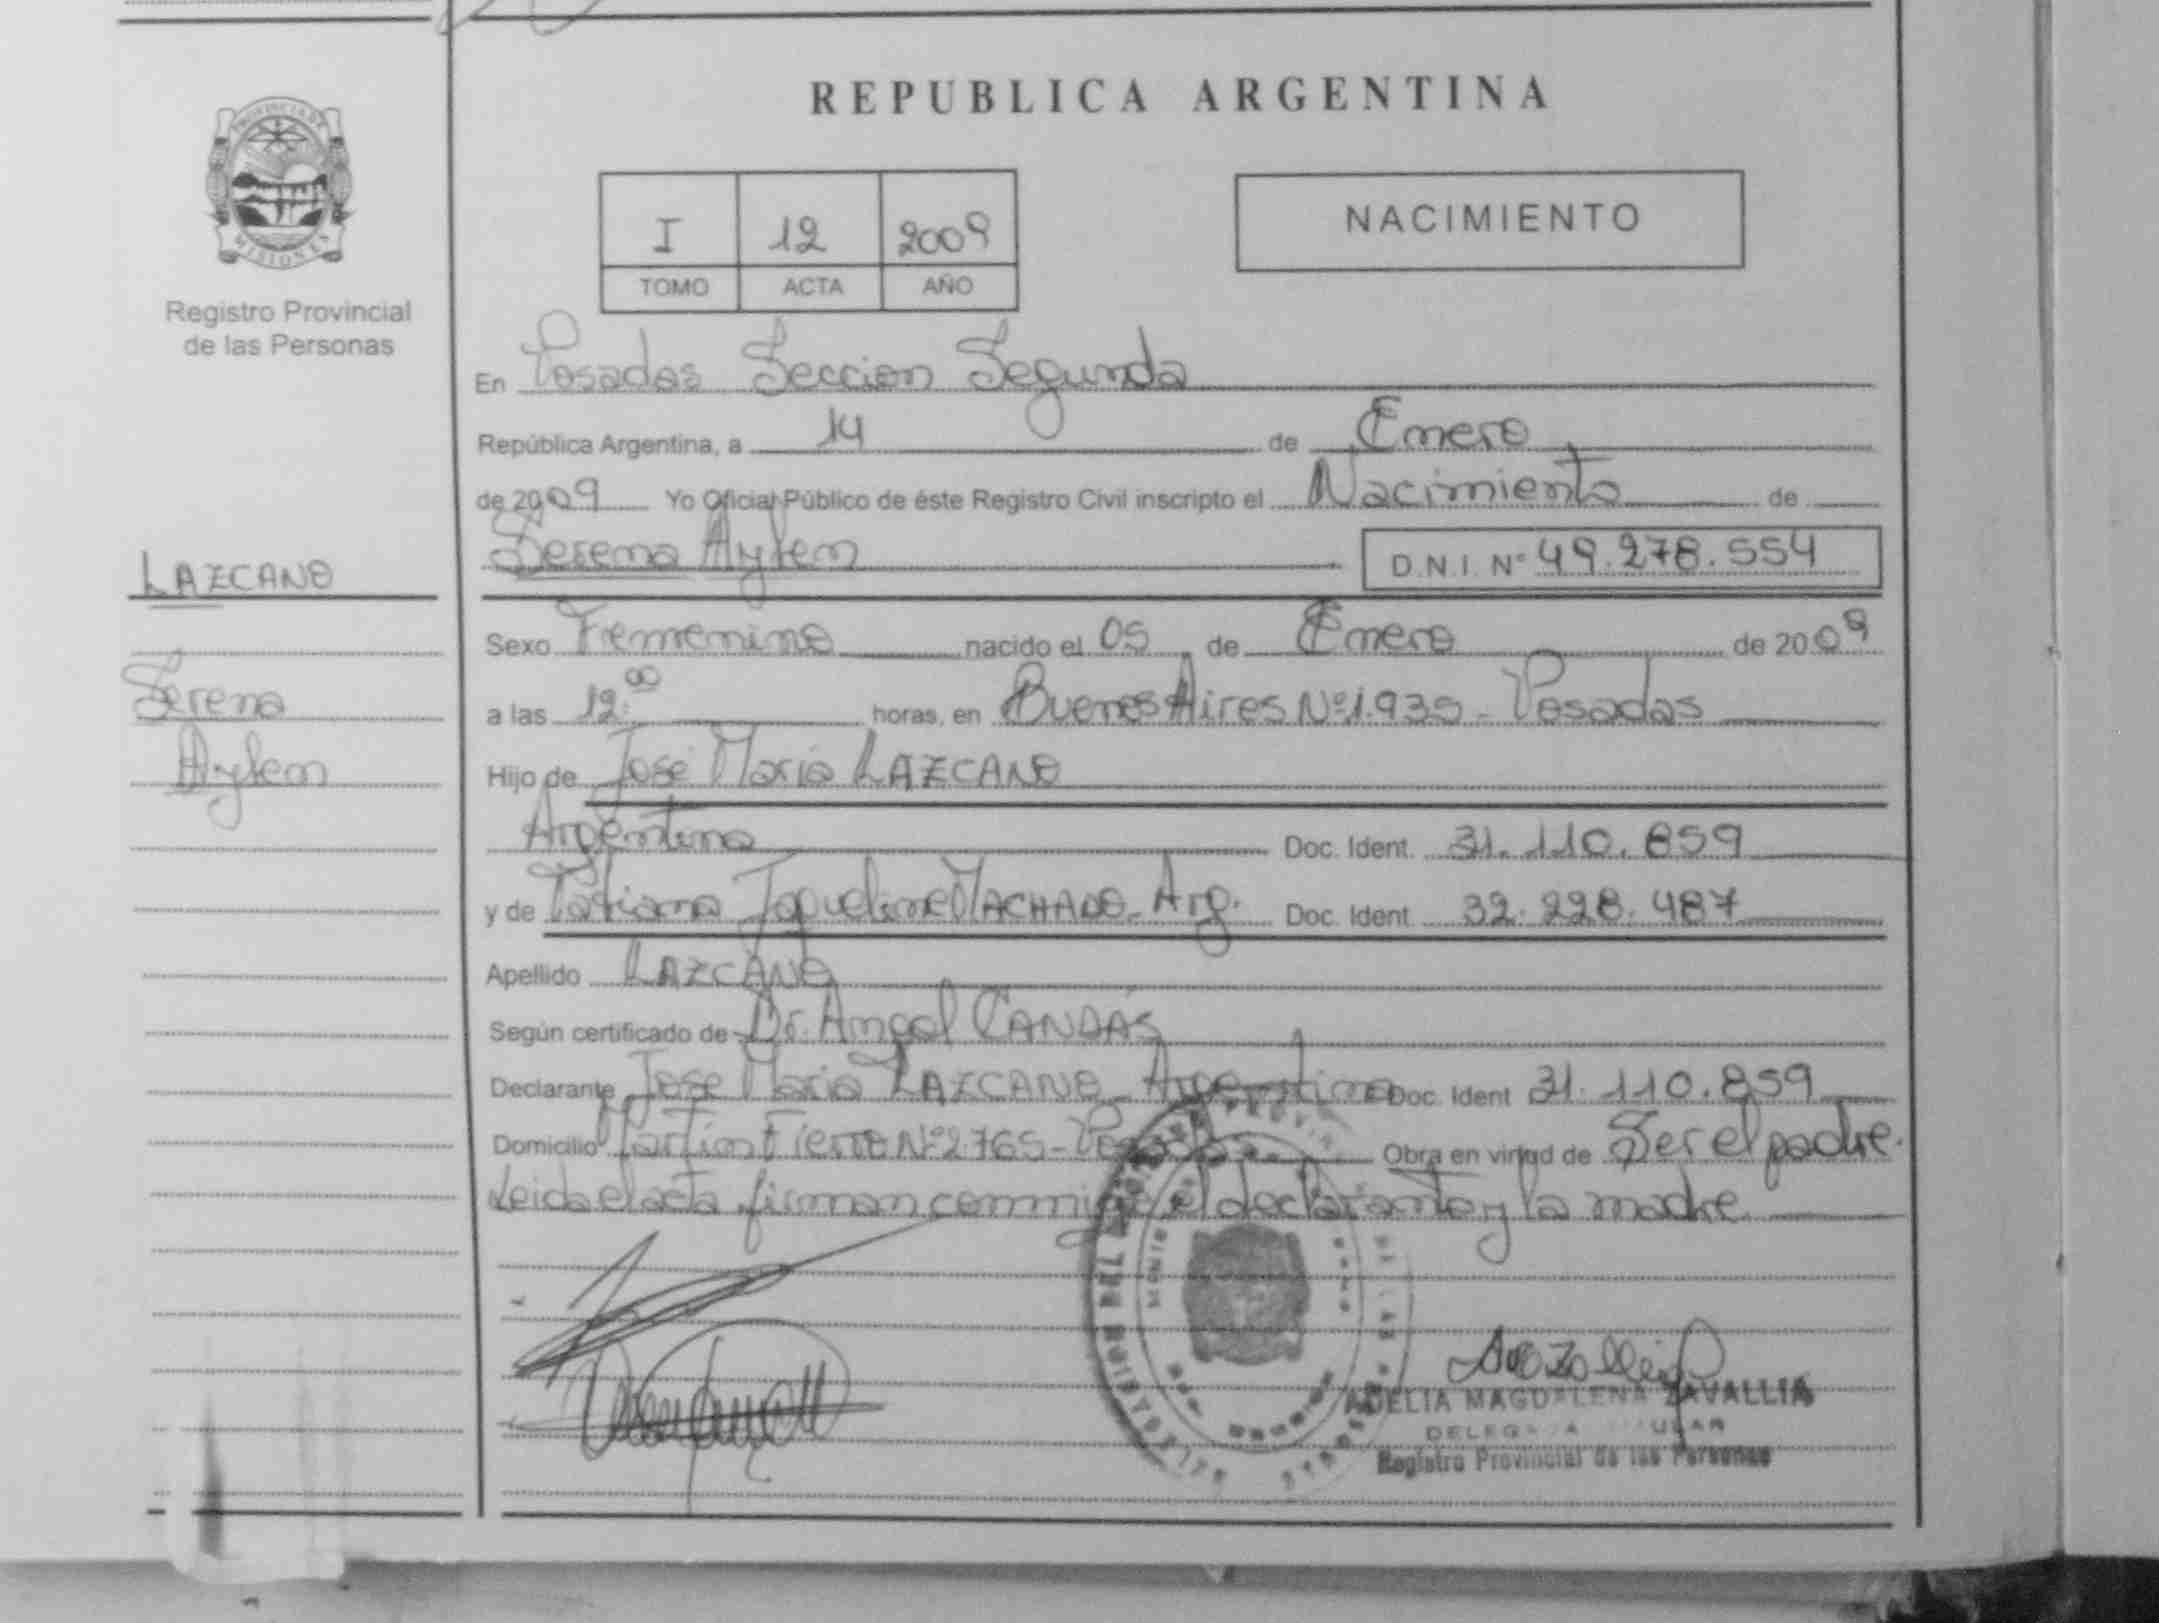 REPUBLICA ARGENTINA
PROVINCIA DE
MISIONES
Registro Provincial
de las Personas
I 12 2009
TOMO ACTA AÑO
NACIMIENTO
En Posadas Seccion Segunda
República Argentina, a 14 de Enero
de 2009 Yo Oficial Público de éste Registro Civil inscripto el Nacimiento de
Serena Aylen D.N.I. Nº 49.278.554
LAZCANO
Serena
Aylen
Sexo Femenino nacido el 05 de Enero de 2009
a las 12:00 horas, en Buenos Aires Nº 1.935 - Posadas
Hijo de José Maria LAZCANO
Argentino Doc. Ident. 31.110.859
y de Tatiana Jaqueline MACHADO - Arg. Doc. Ident 32.228.487
Apellido LAZCANO
Según certificado de Dr. Angel CANDÁS
Declarante Jose Maria LAZCANO - Argentino Doc. Ident 31.110.859
Domicilio Martin Fierro Nº 2765 - Posadas Obra en virtud de Ser el padre.
Leida el acta, firman conmigo el declarante y la madre
ADELIA MAGDALENA ZAVALLIA
Registro Provincial de las Personas